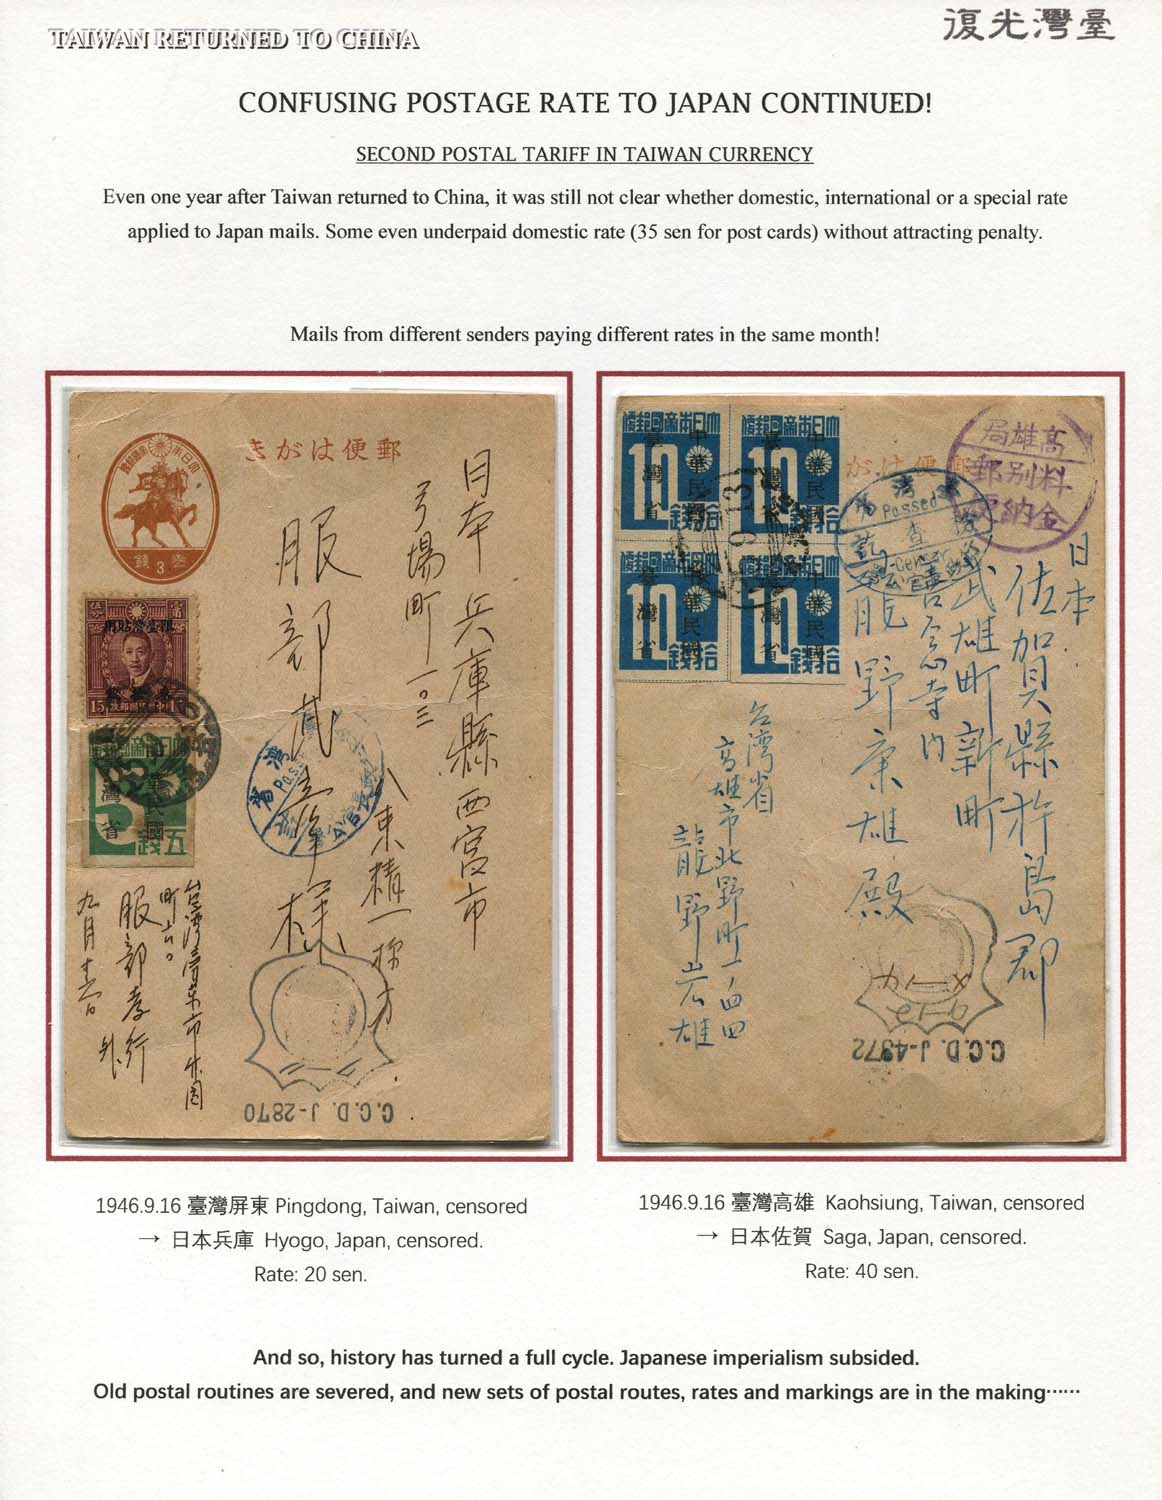 TAIWAN RETURNED TO CHINA
復光灣臺
CONFUSING POSTAGE RATE TO JAPAN CONTINUED!
SECOND POSTAL TARIFF IN TAIWAN CURRENCY
Even one year after Taiwan returned to China, it was still not clear whether domestic, international or a special rate
applied to Japan mails. Some even underpaid domestic rate (35 sen for post cards) without attracting penalty.
Mails from different senders paying different rates in the same month!
きがは便郵
錢 3 參
15
5
錢五
日本 兵庫縣西宮市
弓場町一〇三
八束積一様方
服部
様
Passed
服部孝行
C.C.D. J-2870
10
錢拾
中華民國
臺灣省
10
錢拾
中華民國
臺灣省
10
錢拾
中華民國
臺灣省
10
錢拾
中華民國
臺灣省
局雄高
郵別料
納金
がは便郵
Passed
日本
佐賀縣杵島郡
武雄町新町
龍野康雄殿
台湾省
高雄市北野町
龍野岩雄
C.C.D. J-4372
1946.9.16 臺灣屏東 Pingdong, Taiwan, censored
→ 日本兵庫 Hyogo, Japan, censored.
Rate: 20 sen.
1946.9.16 臺灣高雄 Kaohsiung, Taiwan, censored
→ 日本佐賀 Saga, Japan, censored.
Rate: 40 sen.
And so, history has turned a full cycle. Japanese imperialism subsided.
Old postal routines are severed, and new sets of postal routes, rates and markings are in the making⋯⋯